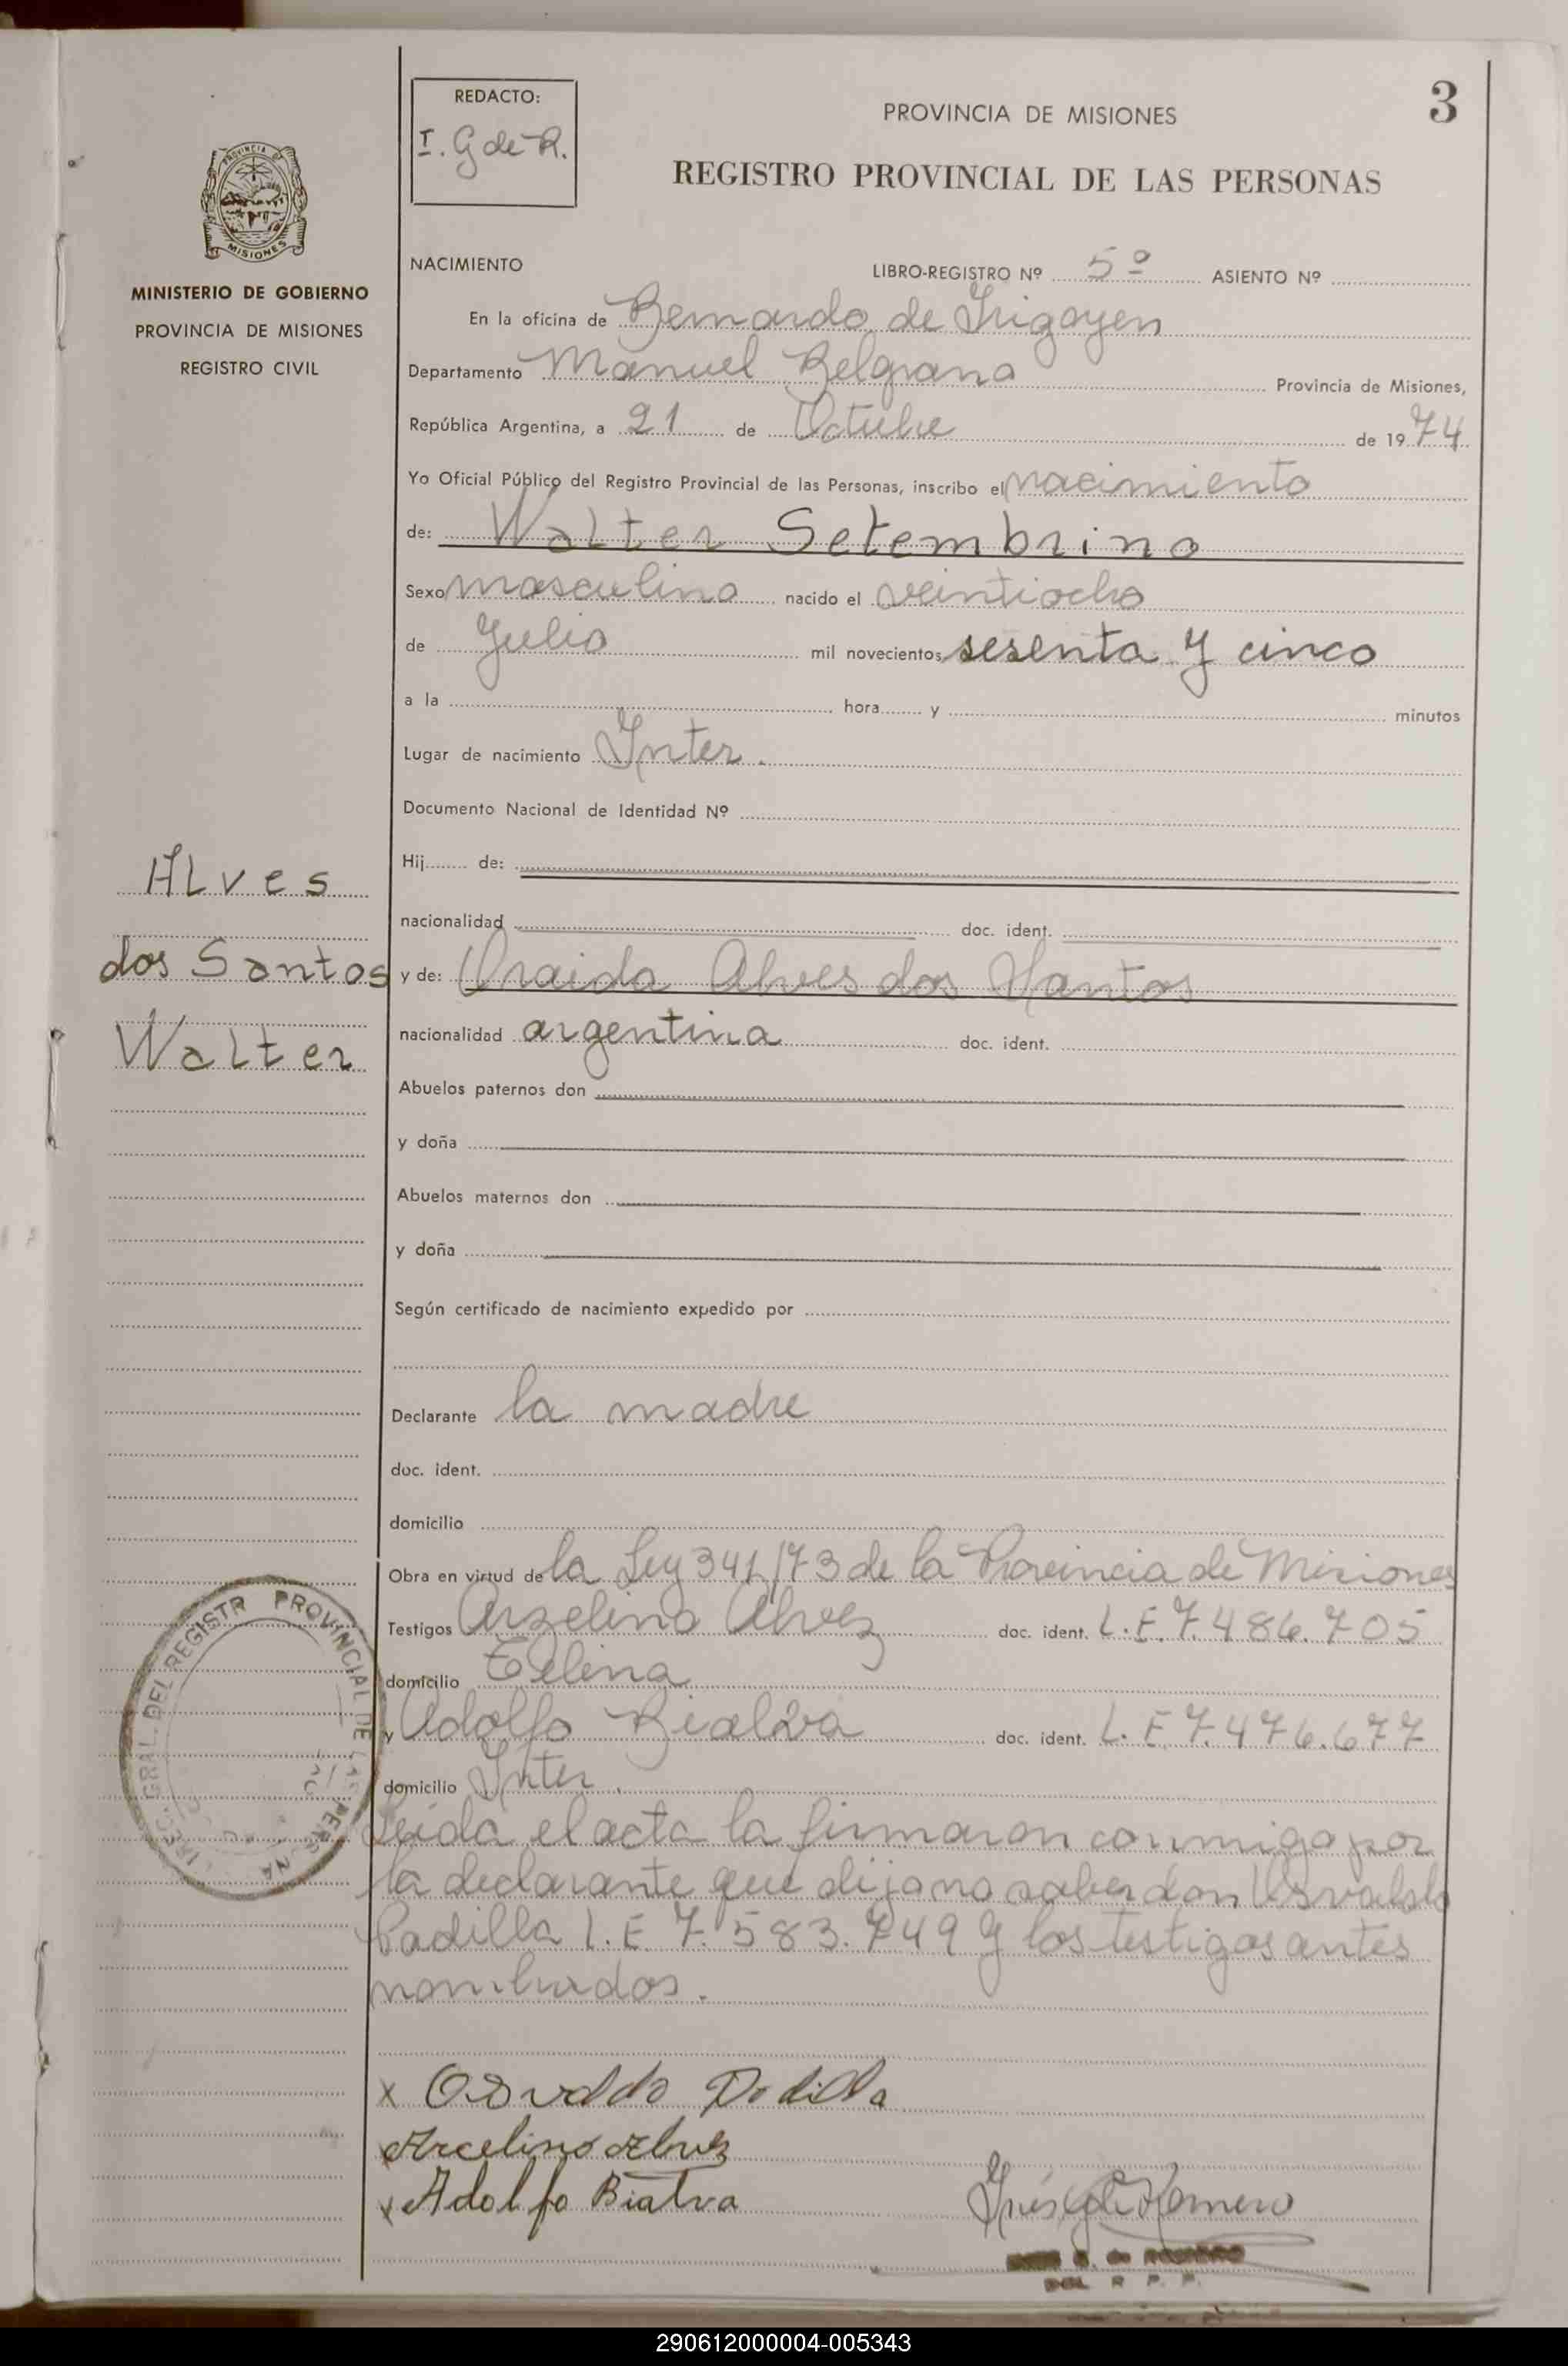 REDACTO:
I. G de R.
3
PROVINCIA DE MISIONES
REGISTRO PROVINCIAL DE LAS PERSONAS
PROVINCIA DE
MISIONES
MINISTERIO DE GOBIERNO
PROVINCIA DE MISIONES
REGISTRO CIVIL
NACIMIENTO
LIBRO-REGISTRO Nº 5º ASIENTO Nº
En la oficina de Bernardo de Irigoyen
Departamento Manuel Belgrano Provincia de Misiones,
República Argentina, a 21 de Octubre de 1974
Yo Oficial Público del Registro Provincial de las Personas, inscribo el nacimiento
de: Walter Setembrino
Sexo masculino nacido el veintiocho
de Julio mil novecientos sesenta y cinco
a la hora y minutos
Lugar de nacimiento Inter.
Documento Nacional de Identidad Nº
Hij de:
nacionalidad doc. ident.
Alves
dos Santos
Walter
y de: Oraida Alves dos Santos
nacionalidad argentina doc. ident.
Abuelos paternos don
y doña
Abuelos maternos don
y doña
Según certificado de nacimiento expedido por
Declarante la madre
doc. ident.
domicilio
Obra en virtud de la Ley 341/73 de la Provincia de Misiones
Testigos Arzelino Alvez doc. ident. L.E. 7.486.705
domicilio
y Adolfo Bialva doc. ident. L.E 7.476.677
domicilio Inter.
Leída el acta la firmaron conmigo por
la declarante que dijo no saber don Osvaldo
Padilla L.E. 7.583.749 y los testigos antes
nombrados.
GRAL. DEL REGISTR PROVINCIAL DE LAS PERS
x Osvaldo Padilla
x Arcelino Alvez
x Adolfo Bialva
Inés G de Romero
G. de ROMERO
R. P. P.
290612000004-005343